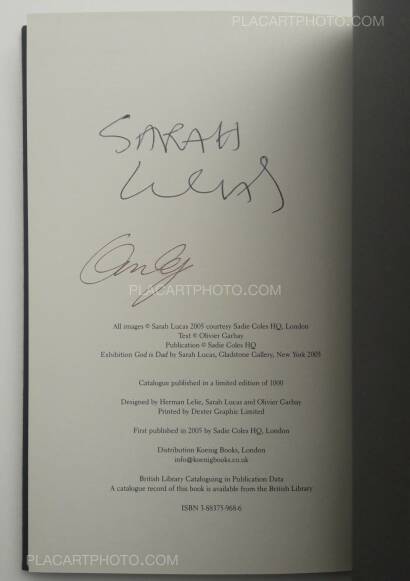 PLACARTPHOTO.COM
SARAH
LUCAS
PLACARTPHOTO.COM
All images © Sarah Lucas 2005 courtesy Sadie Coles HQ, London
Text © Olivier Garbay
Publication © Sadie Coles HQ
Exhibition God is Dad by Sarah Lucas, Gladstone Gallery, New York 2005
Catalogue published in a limited edition of 1000
Designed by Herman Lelie, Sarah Lucas and Olivier Garbay
Printed by Dexter Graphic Limited
First published in 2005 by Sadie Coles HQ, London
Distribution Koenig Books, London
info@koenigbooks.co.uk
British Library Cataloguing in Publication Data
A catalogue record of this book is available from the British Library
ISBN 3-88375-968-6
PLACARTPHOTO.COM